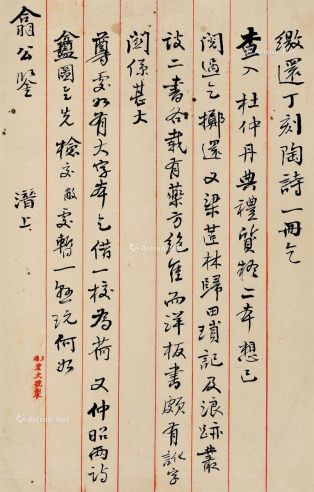 缴還丁刻陶詩一冊乞
查入 杜仲丹典禮質疑二本想已
閱過乞擲還又梁茝林歸田瑣記及浪跡叢
談二書各載有藥方絕佳而洋板書頗有訛字
關係甚大
尊處如有大字本乞借一校為荷 又仲昭两詩
盦圖乞先檢交敝處暫一 玩何如
翁公鑒 潛上
Artron.Net